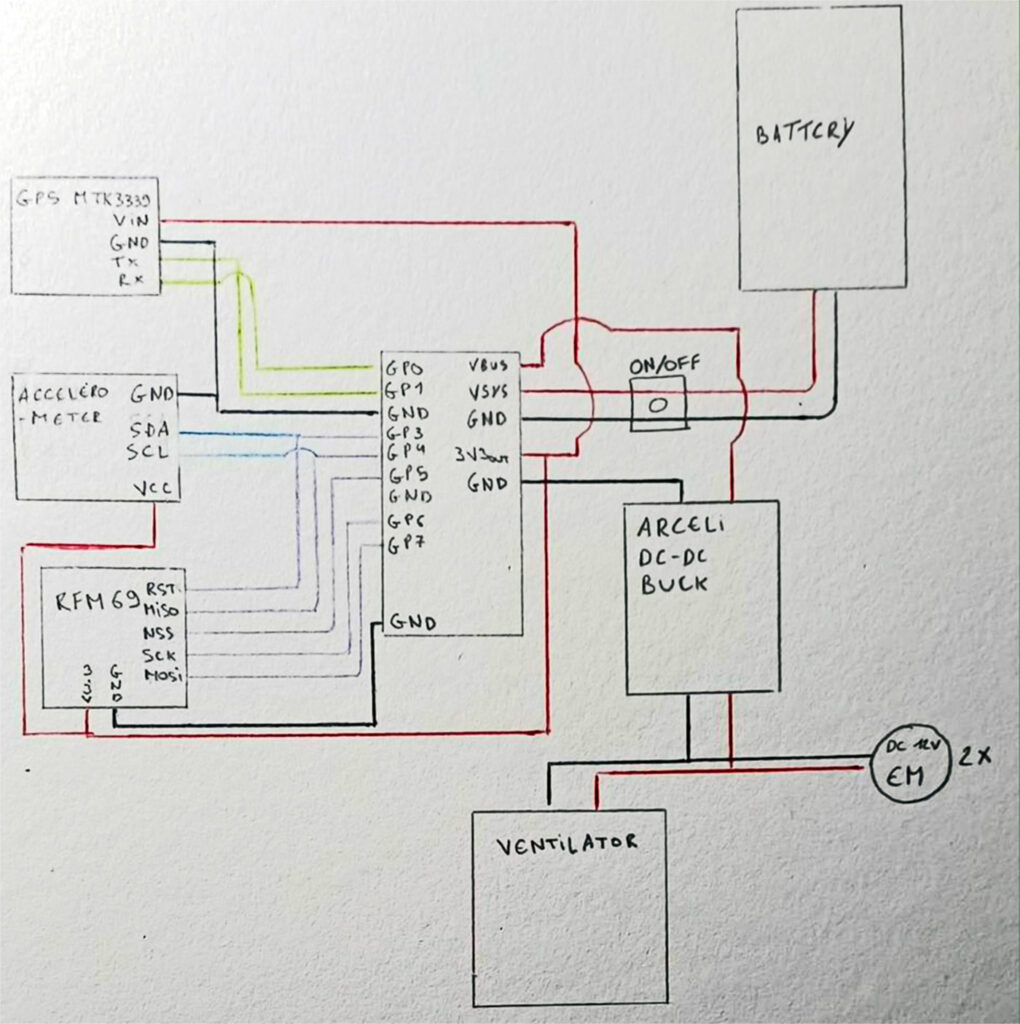 BATTERY
GPS MTK3339
ViN
GND
Tx
Rx
ACCELERO
-METER
GND
SDA
SCL
VCC
RFM69
RST
MiSO
NSS
SCK
MOSi
3.3V
GND
GP0
GP1
GND
GP3
GP4
GP5
GND
GP6
GP7
GND
VBUS
VSYS
GND
3V3out
GND
ON/OFF
O
ARCELi
DC-DC
BUCK
DC 12V
EM
2X
VENTiLATOR